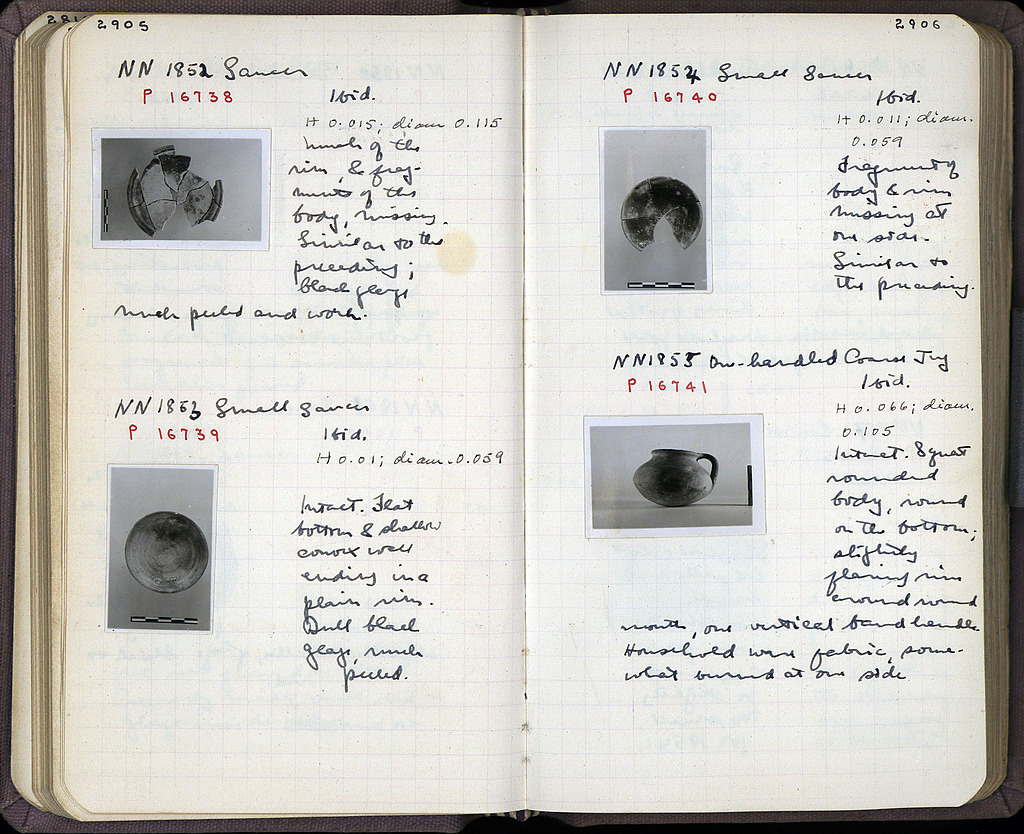 2905
NN 1852 Saucer
P 16738
Ibid.
H 0.015; diam 0.115
Much of the
rim, & frag-
ments of the
body, missing.
Similar to the
preceding;
black glaze
much peeled and worn.
NN 1853 Small Saucer
P 16739
Ibid.
H 0.01; diam. 0.059
Intact. Flat
bottom & shallow
convex wall
ending in a
plain rim.
Dull black
glaze, much
peeled.
2906
NN 1854 Small Saucer
P 16740
Ibid.
H 0.011; diam.
0.059
Fragment of
body & rim
missing at
one side.
Similar to
the preceding.
NN 1855 One-handled Coarse Jug
P 16741
Ibid.
H 0.066; diam.
0.105
Intact. Squat
rounded
body, round
on the bottom;
slightly
flaring rim
around round
mouth, one vertical band handle.
Household ware fabric, some-
what burned at one side